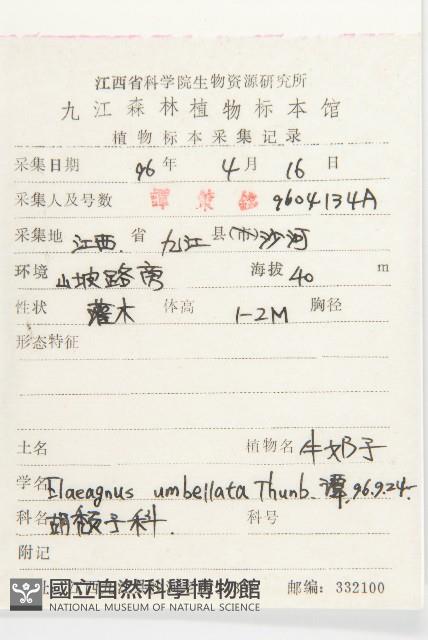 江西省科学院生物资源研究所
九江森林植物标本馆
植物标本采集记录
采集日期 96 年 4 月 16 日
采集人及号数 譚策銘 9604134A
采集地 江西 省 九江 县(市) 沙河
环境 山坡路旁 海拔 40 m
性状 灌木 体高 1-2M 胸径
形态特征
土名 植物名 牛奶子
学名 Elaeagnus umbellata Thunb. 譚 96.9.24.
科名 胡颓子科. 科号
附记
國立自然科學博物館 邮编: 332100
NATIONAL MUSEUM OF NATURAL SCIENCE